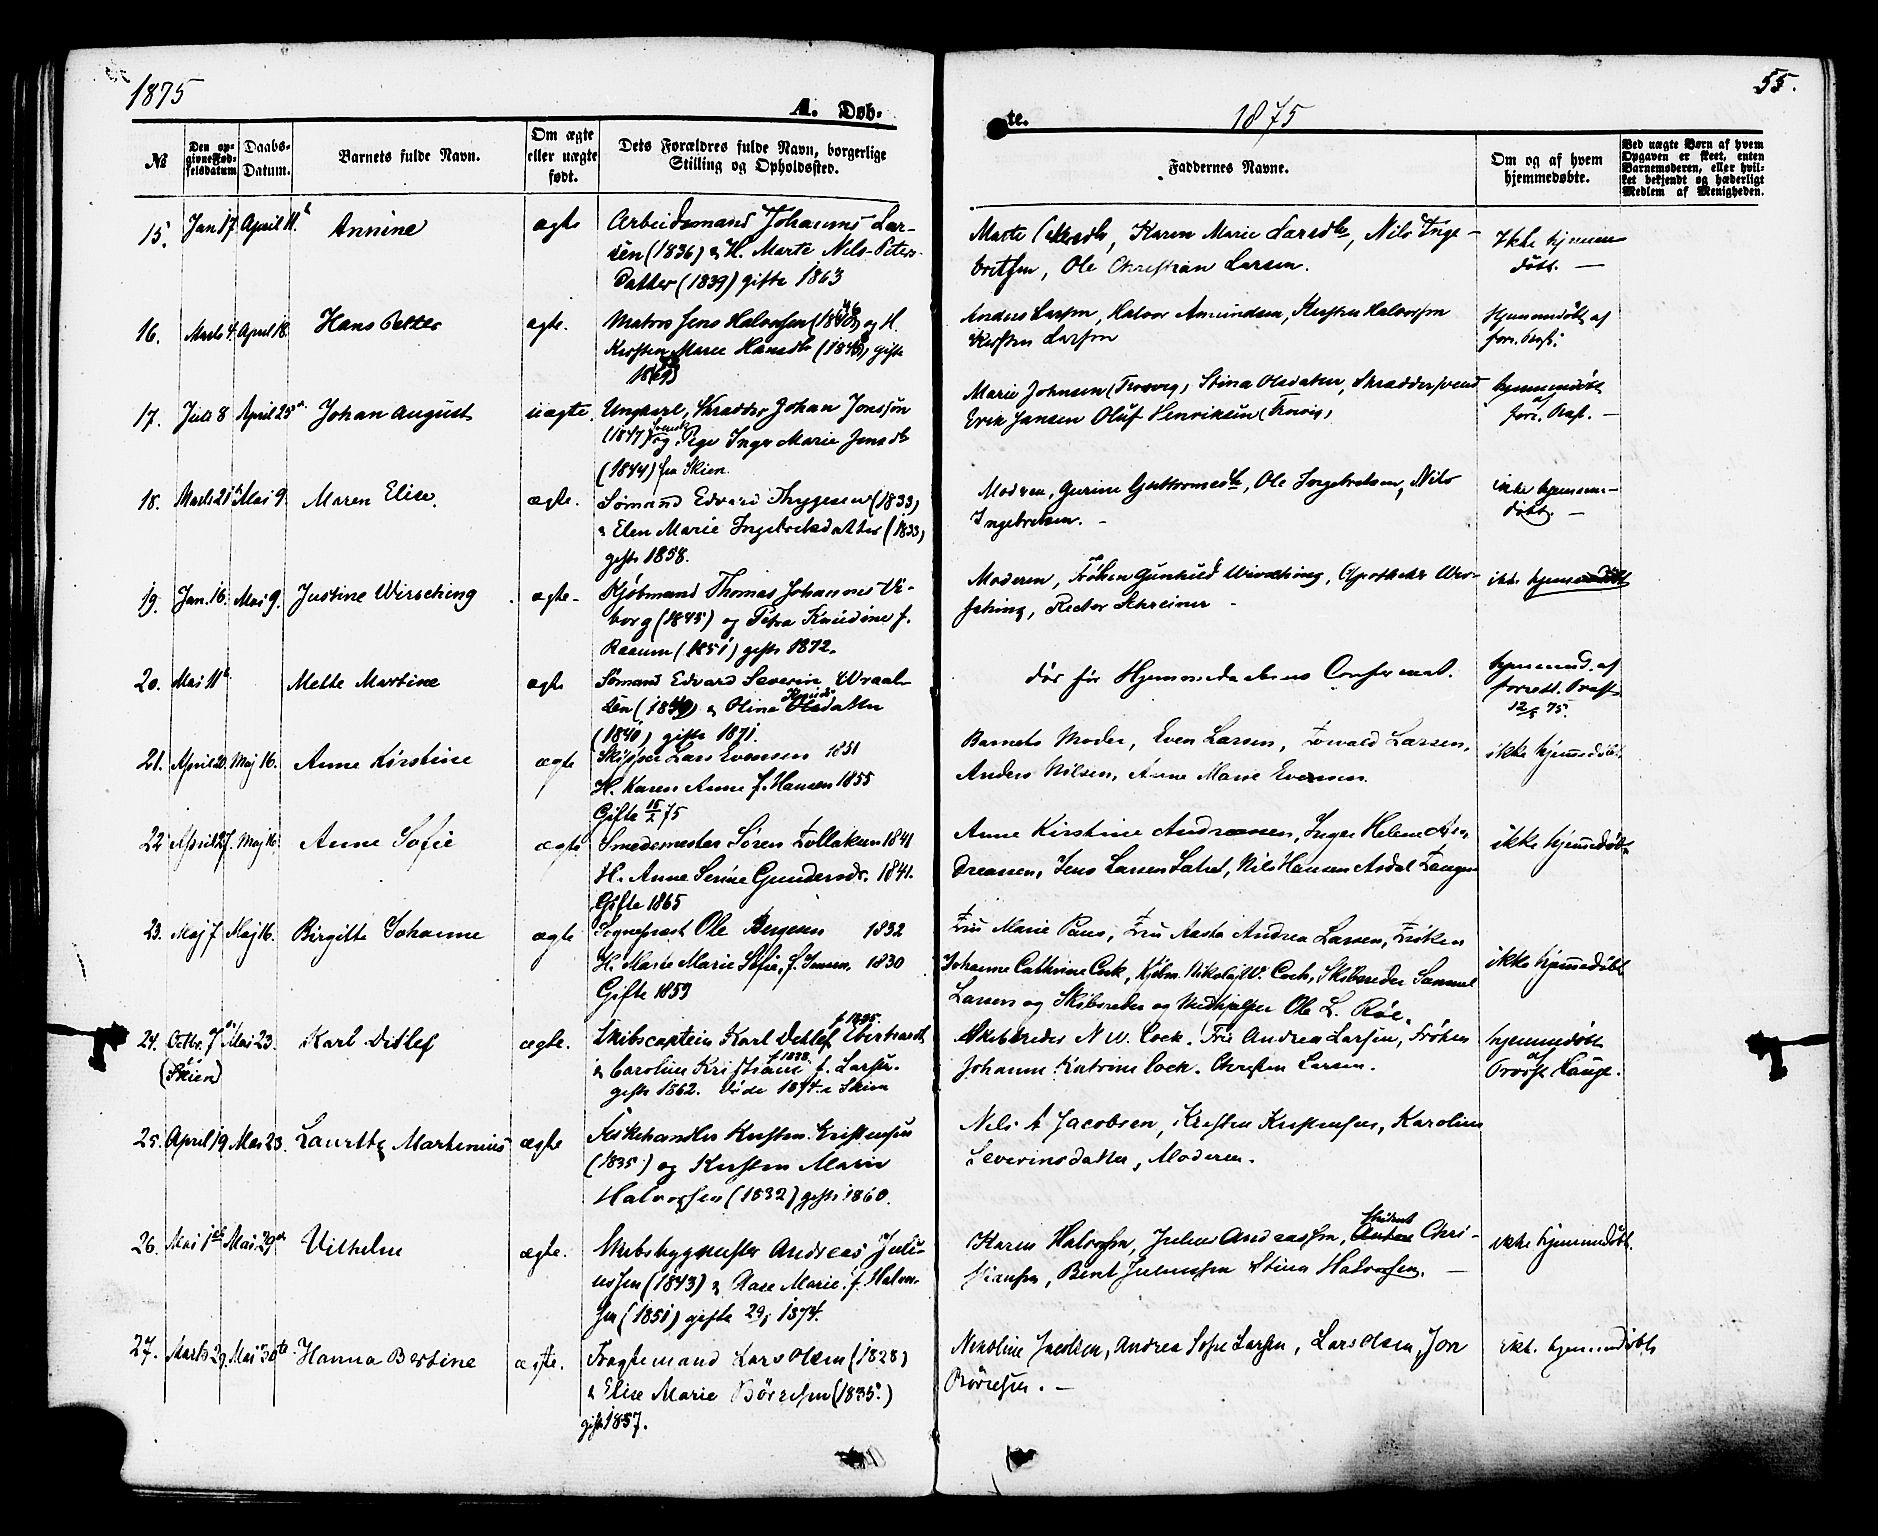 1875
A. Døb-
te.
1875
55.
№
Den op-
givne Fød-
selsdatum
Daabs-
Datum.
Barnets fulde Navn.
Om ægte
eller uægte
født.
Dets Forældres fulde Navn, borgerlige
Stilling og Opholdssted.
Faddernes Navne.
Om og af hvem
hjemmedøbte.
Ved uægte Børn af hvem
Opgaven er skeet, enten
Barnemoderen, eller hvil-
ket bekjendt og hæderligt
Medlem af Menigheden.
15. Jan 17. April 11. Annine ægte
Arbeidsmand Johannes Lar-
sen (1836) & H. Marte Nils-Peters-
datter (1839) gifte 1863
Marte Karen Marie Larsdtr, Nils Inge-
britsen, Ole Christian Larsen.
Ikke hjemme
døbt. —
16. Marts 4. April 18. Hans Petter ægte.
Matros Jens Halvorsen og H.
Kirsten Marie Hansdtr gifte
Anders Larsen, Halvor Amundsen, Kirsten Halvorsen
Kirsten Larsen
Hjemmedøbt af
forr. Præst.
17. Juli 8 April 25 Johan August uægte.
Ungkarl, Skrædder Johan Jonsson
(1847) og Pige Inger Marie Jensdtr
(1844) fra Skien.
Marie Johnsen Stina Olsdatter, Skræddersvend
Erik Jansen Oluf Henriksen
hjemmedøbt
af
forr. Præst. —
18. Marts 21 Mai 9. Maren Elise. ægte.
Sømand Edvard Thygesen (1833)
& Elen Marie Ingebretsdatter (1833)
gifte 1858.
Modren, Gurine Guttormsdtr, Ole Ingebretsen, Nils
Ingebretsen. —
ikke hjemme-
døbt. —
19. Jan. 16. Mai 9. Justine Wirsching ægte-
Kjøbmand Thomas Johannes Vi-
borg (1845) og Petra Knudine f.
Raaum (1851) gifte 1872.
Moderen, Frøken Gunhild Wirsching, Apotheker Wir-
sching, Rector Schreiner —
ikke hjemmedøbt
20. Mai 11 Mette Martine ægte
Sømand Edvard Severin Wraal-
sen & Oline Knuds Olsdatter
(1840) gifte 1871.
dør før Hjemmedaabens Confirmat.
hjemmed. af
forrett. Præst
12/5 75.
21. April 20. Maj 16. Anne Kirstine ægte
Skipper Lars Evensen 1851
H. Karen Anne f. Hansen 1855
Gifte 15/2 75
Barnets Moder, Even Larsen, Edvald Larsen,
Anders Nilsen, Anne Marie Evensen.
ikke hjemmedøbt.
22 April 27. Maj 16. Anne Sofie ægte
Smedemester Søren Tollaksen 1841
H. Anne Serine Gundersdr. 1841.
Gifte 1865
Anne Kirstine Andreassen, Inger Helene An-
dreassen, Jens Larsen Nils Hansen Asdal
ikke hjemmedøbt.
23. Maj 7 Maj 16. Birgitte Johanne ægte
Sognepræst Ole Bergesen 1832
H. Marte Marie Sofie, f. Jensen. 1830
Gifte 1859
Fru Marie Paus, Fru Aasta Andrea Larsen, Frøken
Johanne Cathrine Cock, Kjøbm. Nikolaj W. Cock, Skibsreder Samuel
Larsen og Skibsreder og Medhjælper Ole L. Røe.
ikke hjemmedøbt
24. Octbr. 7 Mai 23. Karl Ditlef ægte.
(Skien)
f 1835.
Skibscaptein Karl Detlef Eberhardt
f 1838
& Caroline Kristiane f. Larsen.
gifte 1862. døde 1874 i Skien
Skibsreder N W. Cock. Fru Andrea Larsen, Frøken
Johanne Katrine Cock. Christen Larsen.
hjemmedøbt
af
Provst Lange.
25. April 19. Mai 23. Lauritz Martenius ægte
Fiskehandler Kristen Kristensen
(1835) og Kirsten Marie
Halvorsen (1832) gifte 1860.
Nils A Jacobsen, Kristen Kristensen, Karoline
Severinsdatter, Moderen.
26. Mai 1 Mai 29 Vilhelm ægte.
Skibsbygmester Andreas Juli-
ussen (1843) & Aase Marie f. Halvor-
sen (1851) gifte 1874.
Student
Karen Halvorsen, Julius Andreassen, Anton Chri-
stiansen, Bent Juliussen Stina Halvorsen. —
ikke hjemmedøbt.
27. Marts 29 Mai 30te. Hanna Bertine ægte.
Fragtemand Lars Olsen (1828)
& Elise Marie Börresen (1835.)
gift 1857.
Nikoline Jacobsen, Andrea Sofie Larsen, Lars Olsen, Jon
Börresen. —
ikke hjemmedøbt